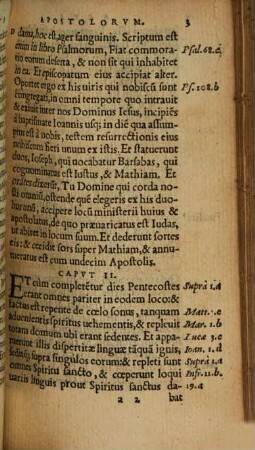 APOSTOLORVM. 3
dama, hoc est, ager sanguinis. Scriptum est
enim in libro Psalmorum, Fiat commora- Psal. 68. d.
tio eorum deserta, & non sit qui inhabitet
in ea. Et episcopatum eius accipiat alter.
Oportet ergo ex his uiris qui nobiscū sunt Ps. 108. b
congregati, in omni tempore quo intrauit
& exiuit inter nos Dominus Iesus, incipiēs
à baptismate Ioannis usq; in diē qua assum-
ptus est à nobis, testem resurrectionis eius
nobiscum fieri unum ex istis. Et statuerunt
duos, Ioseph, qui uocabatur Barsabas, qui
cognominatus est Iustus, & Mathiam. Et
dixerūt, Tu Domine qui corda no-
omniū, ostende quē elegeris ex his duo-
unū, accipere locū ministerii huius &
apostolatus, de quo præuaricatus est Iudas,
ut abiret in locum suum. Et dederunt sortes
eis: & cecidit sors super Mathiam, & annu-
meratus est cum undecim Apostolis.
CAPVT II.
ET cùm complerētur dies Pentecostes Suprà 1. a
erant omnes pariter in eodem loco: &
factus est repente de cœlo sonus, tanquam Matt. 3. c
aduenientis spiritus uehementis, & repleuit Mar. 1. b
totam domum ubi erant sedentes. Et appa- Lucæ 3. c
ruerunt illis dispertitæ linguæ tāquā ignis, Ioan. 1. d
seditq; supra singulos eorum: & repleti sunt Suprà 1. a
omnes Spiritu sancto, & cœperunt loqui Inf. 11. b.
uariis linguis prout Spiritus sanctus da- 19. a
a 2 bat